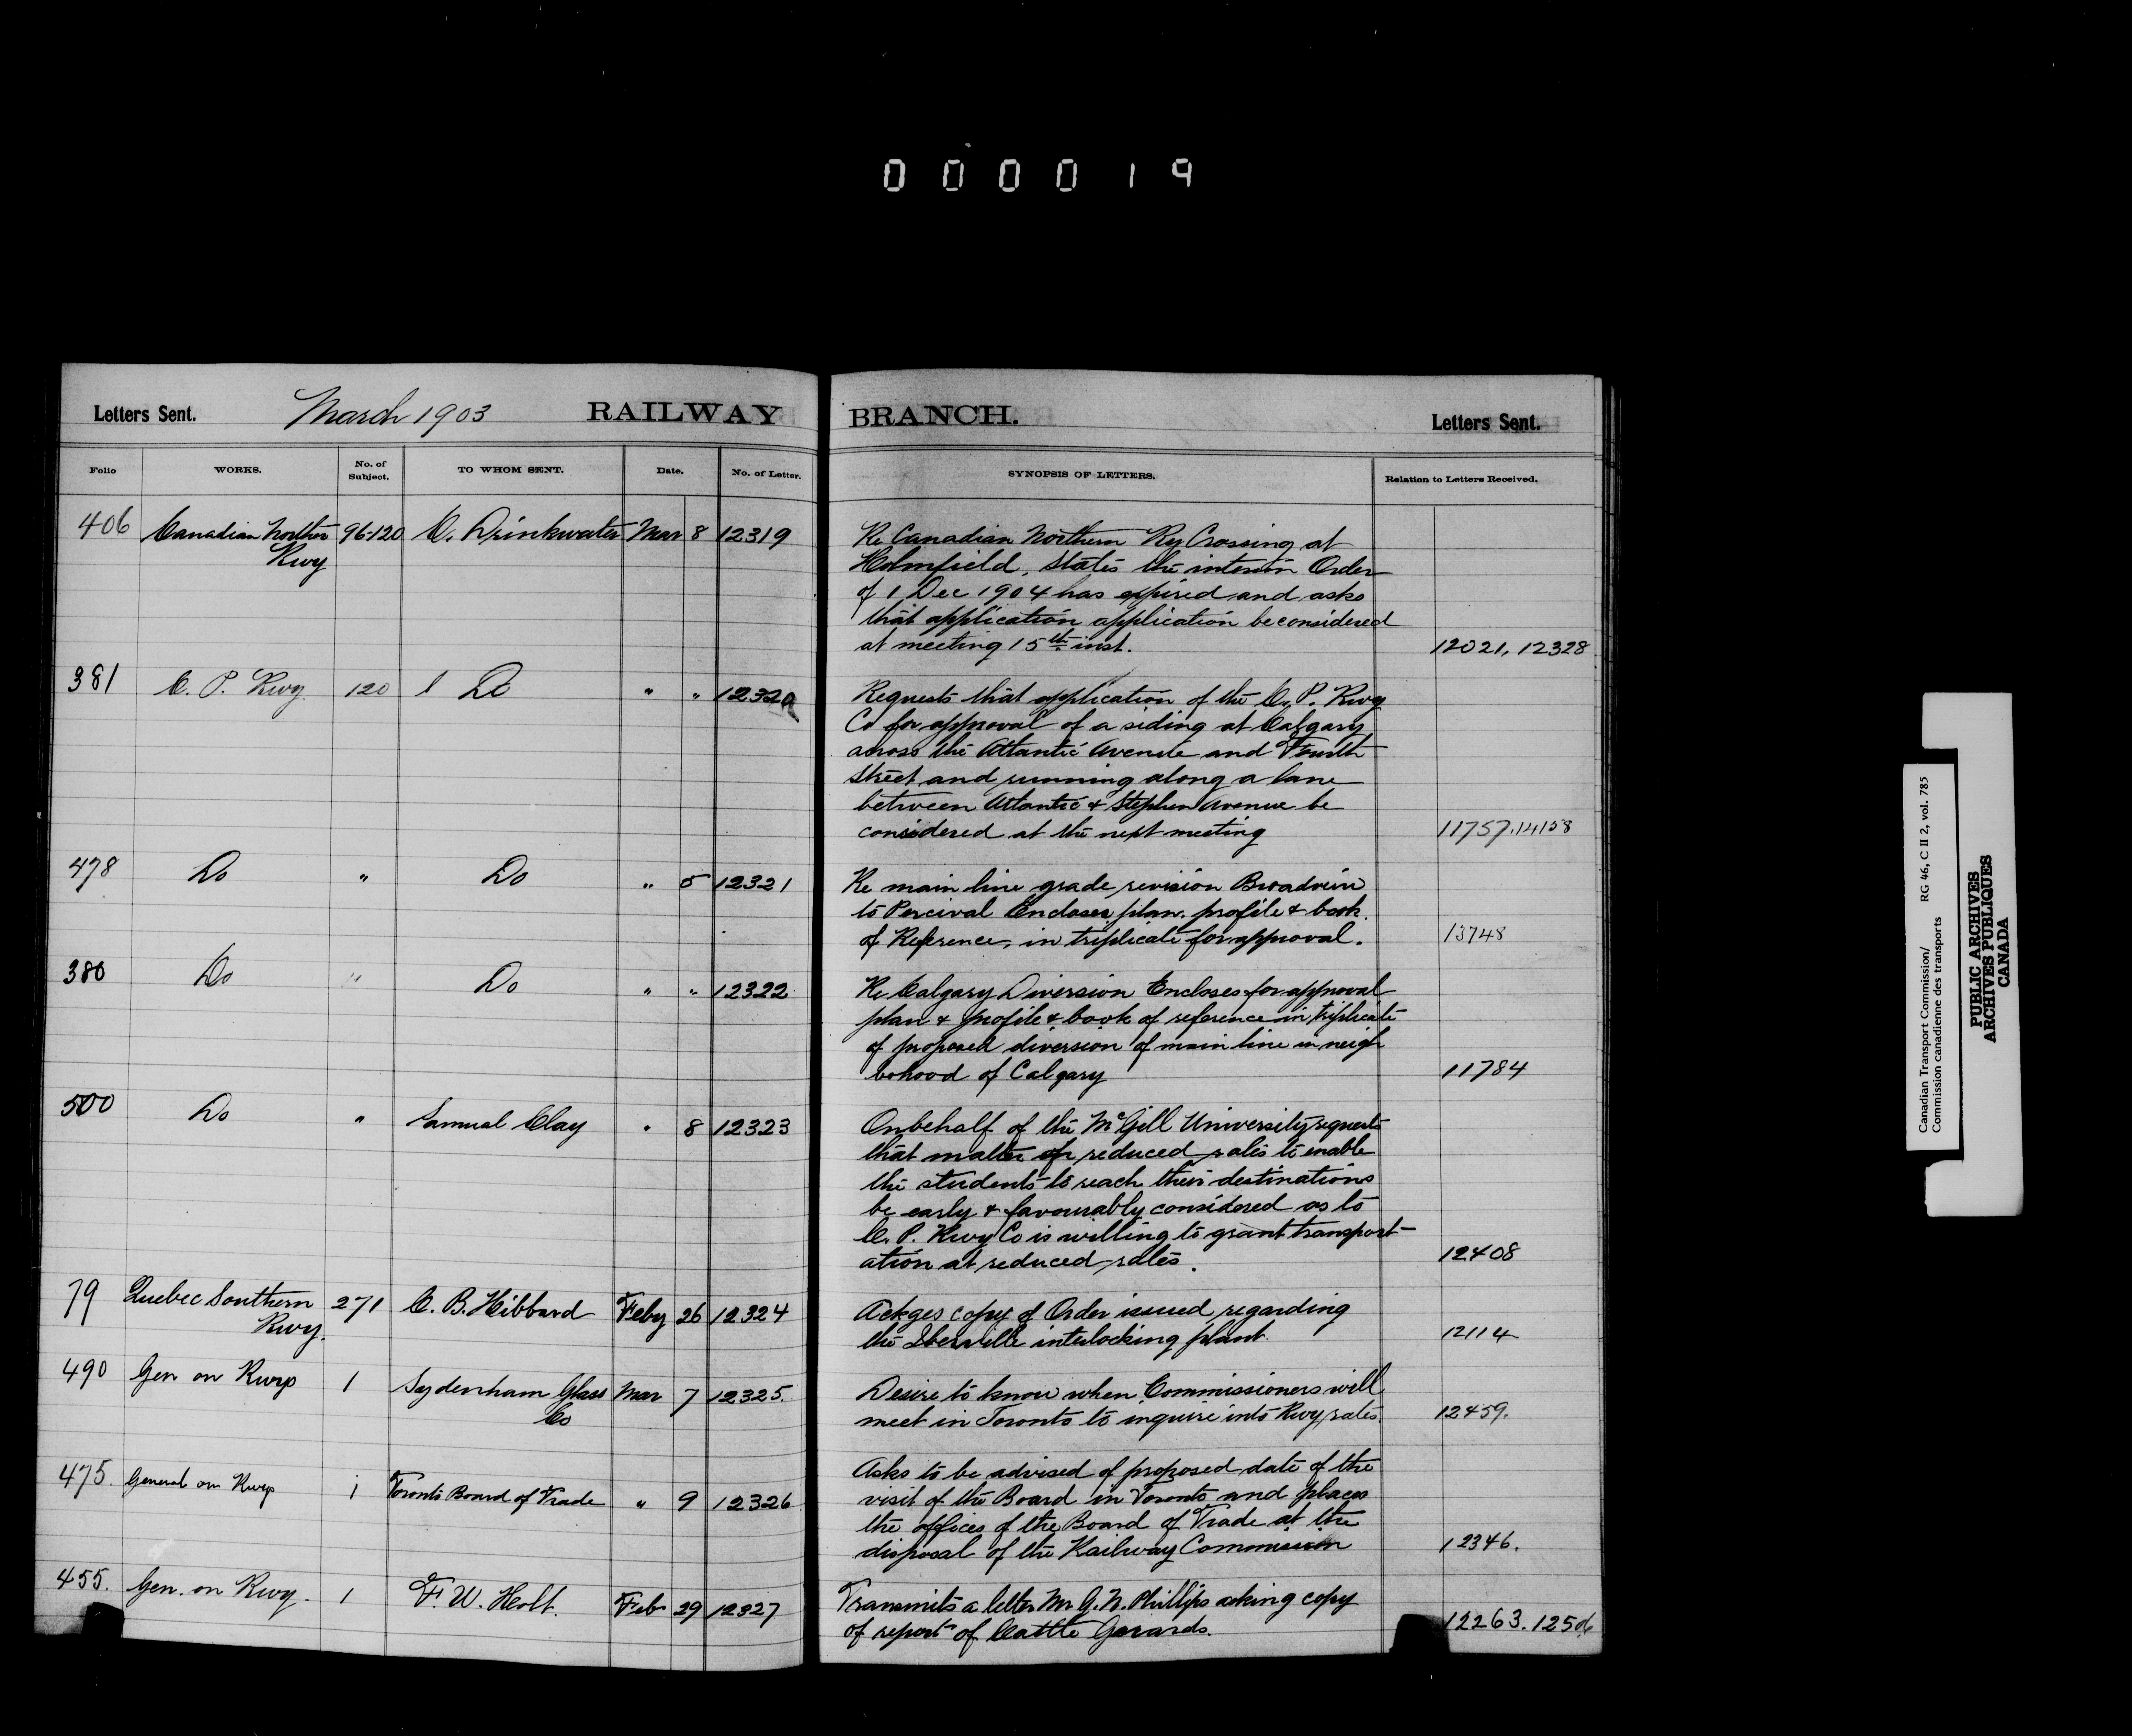 000019
Letters Sent. March 1903 RAILWAY BRANCH. Letters Sent.
Folio WORKS. No. of Subject. TO WHOM SENT. Date. No. of Letter. SYNOPSIS OF LETTERS. Relation to Letters Received.
406 Canadian Northn 96-120 C. Drinkwater Mar 8 12319 Re Canadian Northern Ry Crossing at
Rwy Holmfield, states the interim Order
of 1 Dec 1904 has expired and asks
that application application be considered
at meeting 15th inst. 12021, 12328
381 C. P. Rwy. 120 Do " " 12320 Requests that application of the C. P. Rwy
Co for approval of a siding at Calgary
across the Atlantic Avenue and Fourth
Street and running along a lane
between Atlantic & Stephen Avenue be
considered at the next meeting 11757, 14158
478 Do " Do " 5 12321 Re main line grade revision Broadview
to Percival Encloses plan, profile & book
of Reference, in triplicate for approval. 13748
380 Do " Do " " 12322 Re Calgary Diversion Encloses for approval
plan & profile & book of reference in triplicate
of proposed diversion of main line in neigh
bohood of Calgary 11784
500 Do " Samuel Clay " 8 12323 On behalf of the McGill University requests
that matter of reduced rates to enable
the students to reach their destinations
be early & favourably considered as to
C. P. Rwy Co is willing to grant transport-
ation at reduced rates. 12408
79 Quebec Southern 271 C. B. Hibbard Feby 26 12324 Ackges copy of Order issued regarding
Rwy. the Iberville interlocking plant. 12114
490 Gen on Rwys 1 Sydenham Glass Mar 7 12325. Desire to know when Commissioners will
Co meet in Toronto to inquire into Rwy rates. 12459.
475. General on Rwys 1 Toronto Board of Trade " 9 12326 Asks to be advised of proposed date of the
visit of the Board in Toronto and places
the offices of the Board of Trade at the
disposal of the Railway Commission 12346.
455. Gen. on Rwy. 1 F. W. Holt. Feb 29 12327 Transmits a letter Mr G. N. Phillips asking copy
of report of Cattle Guards. 12263. 12506
Canadian Transport Commission/ RG 46, C II 2, vol. 785
Commission canadienne des transports
PUBLIC ARCHIVES
ARCHIVES PUBLIQUES
CANADA